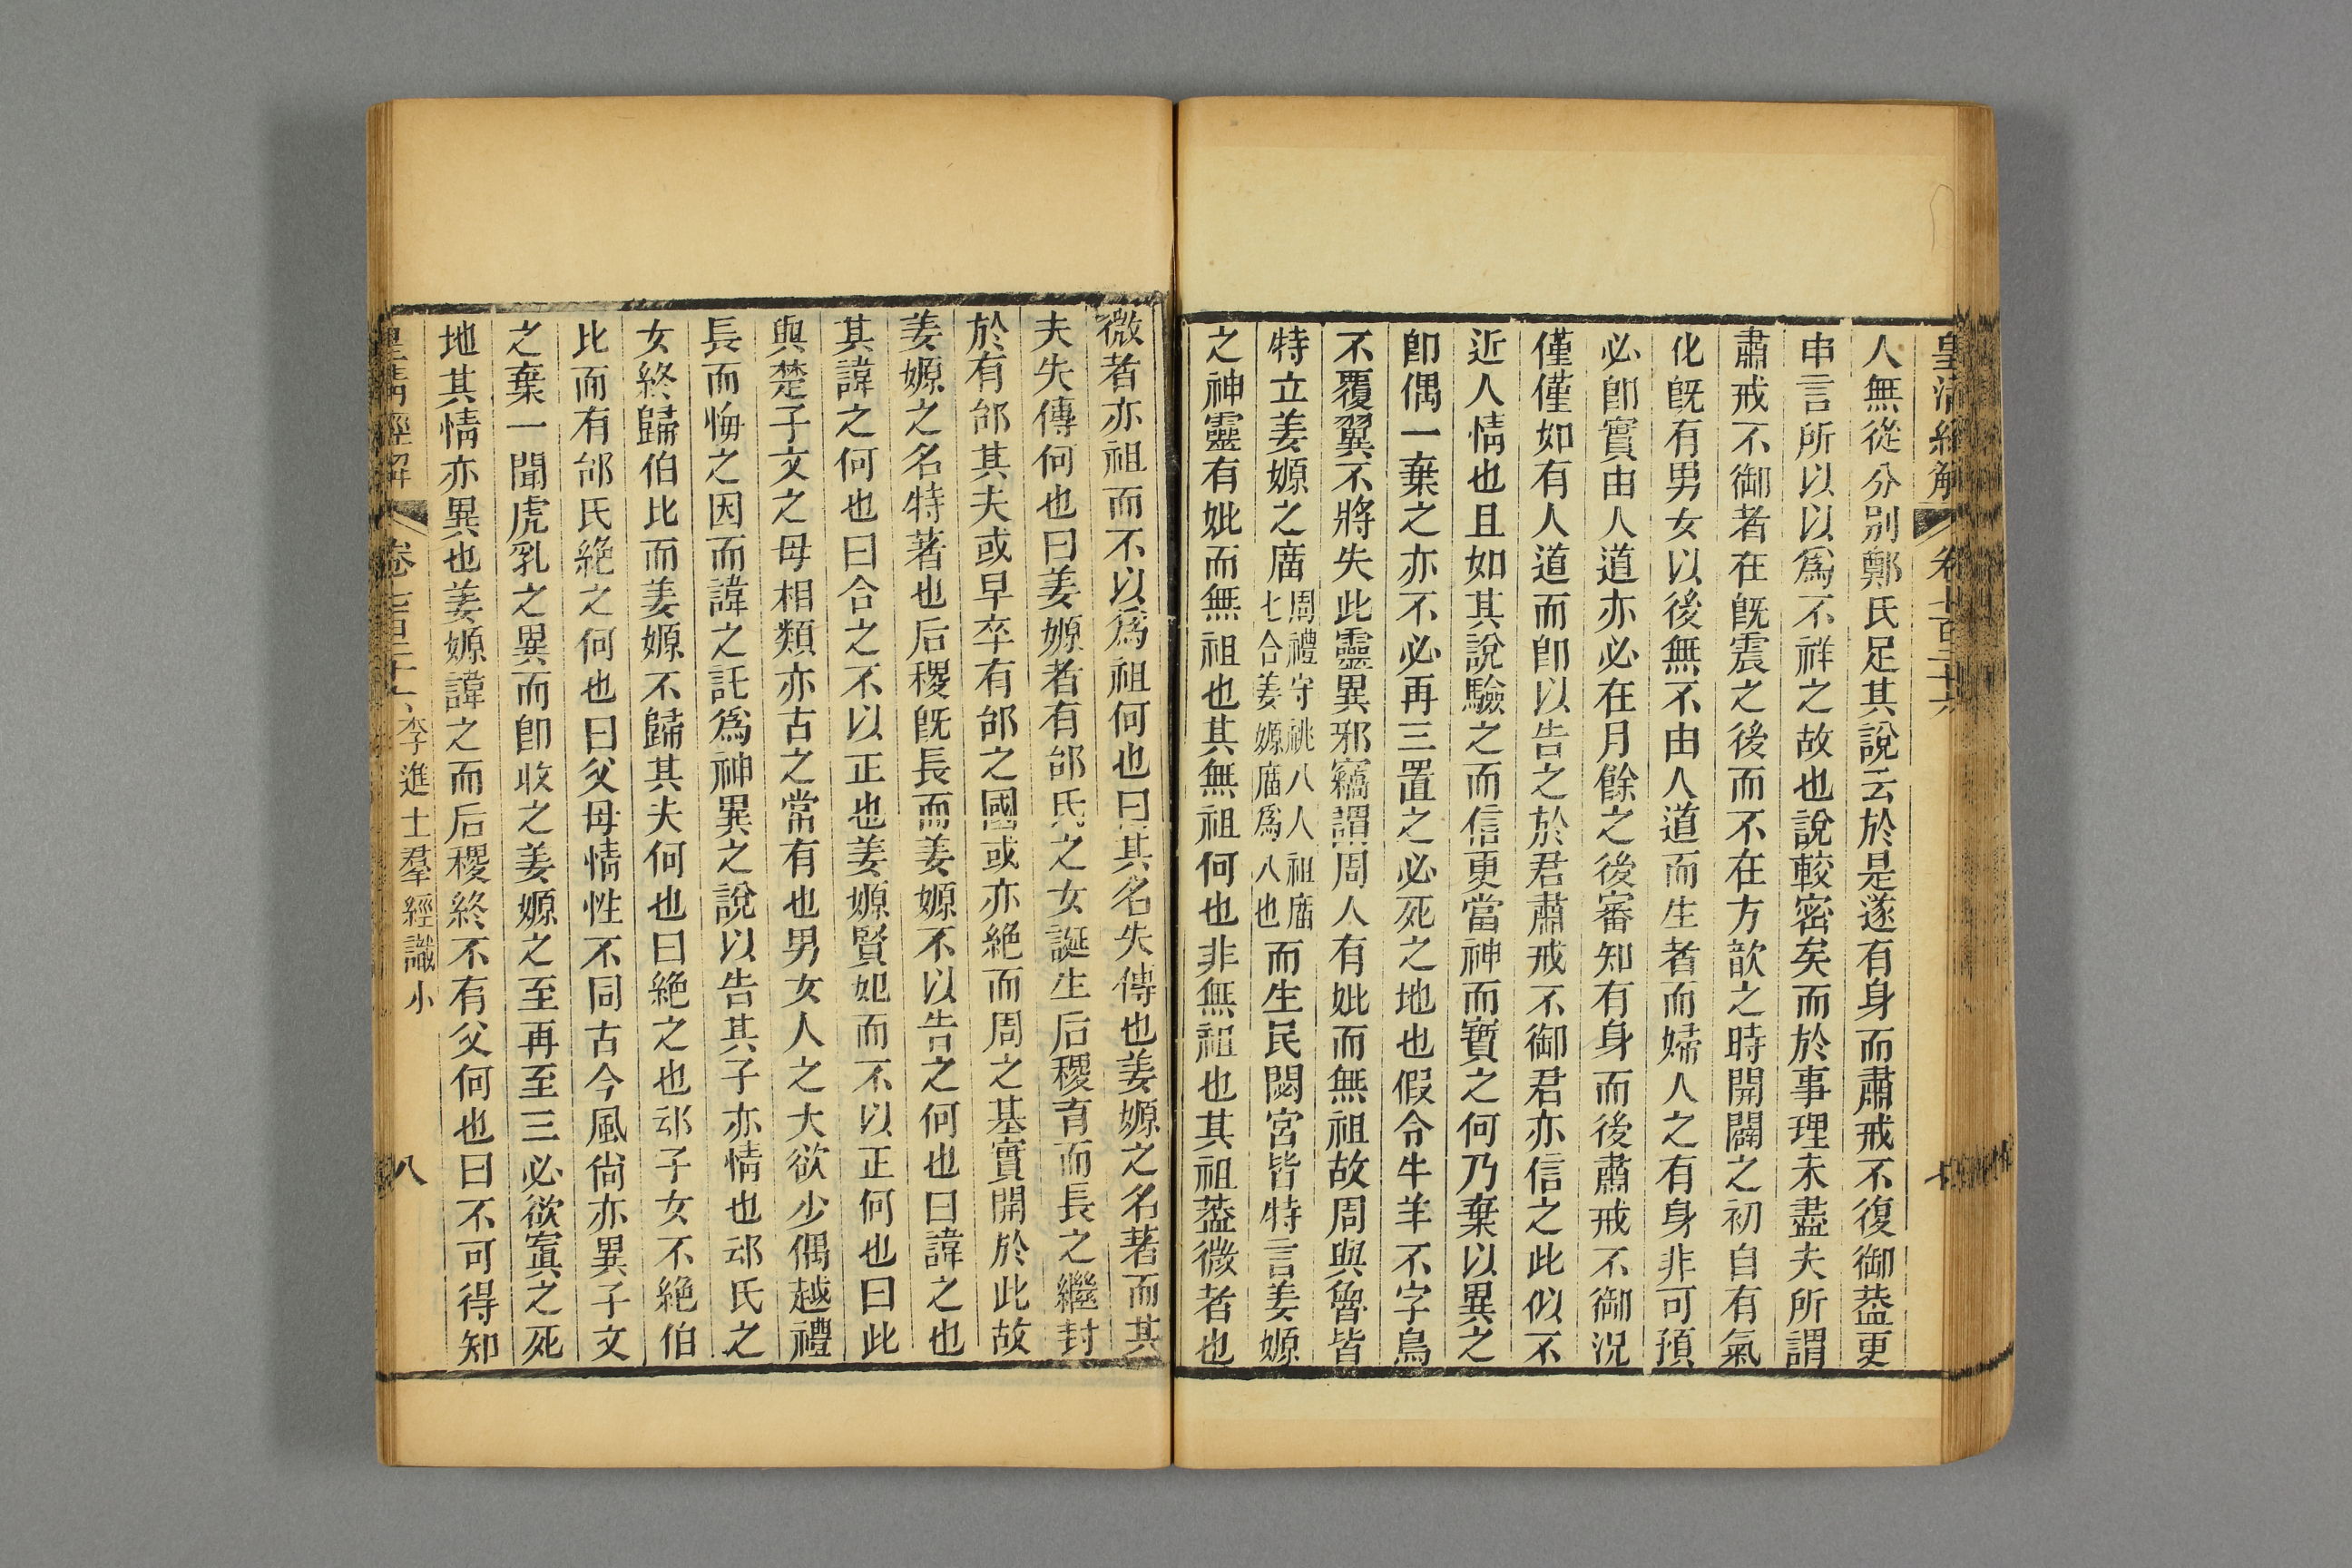 皇清經解
卷七百二十六
七
人無從分別鄭氏足其說云於是遂有身而肅戒不復御葢更
申言所以以爲不祥之故也說較密矣而於事理未盡夫所謂
肅戒不御者在旣震之後而不在方歆之時開闢之初自有氣
化旣有男女以後無不由人道而生者而婦人之有身非可預
必卽實由人道亦必在月餘之後審知有身而後肅戒不御況
僅僅如有人道而卽以告之於君肅戒不御君亦信之此似不
近人情也且如其說驗之而信更當神而寶之何乃棄以異之
卽偶一棄之亦不必再三置之必死之地也假令牛羊不字鳥
不覆翼不將失此靈異邪竊謂周人有妣而無祖故周與魯皆
特立姜嫄之廟周禮守祧八人祖廟七合姜嫄廟爲八也而生民閟宮皆特言姜嫄
之神靈有妣而無祖也其無祖何也非無祖也其祖葢微者也
微者亦祖而不以爲祖何也曰其名失傳也姜嫄之名著而其
夫失傳何也曰姜嫄者有邰氏之女誕生后稷育而長之繼封
於有邰其夫或早卒有邰之國或亦絕而周之基實開於此故
姜嫄之名特著也后稷旣長而姜嫄不以告之何也曰諱之也
其諱之何也曰合之不以正也姜嫄賢妃而不以正何也曰此
與楚子文之母相類亦古之常有也男女人之大欲少偶越禮
長而悔之因而諱之託爲神異之說以告其子亦情也䢵氏之
女終歸伯比而姜嫄不歸其夫何也曰絕之也䢵子女不絕伯
比而有邰氏絕之何也曰父母情性不同古今風尙亦異子文
之棄一聞虎乳之異而卽收之姜嫄之至再至三必欲寘之死
地其情亦異也姜嫄諱之而后稷終不有父何也曰不可得知
皇淸經解
卷七百二十六
李進士羣經識小
八